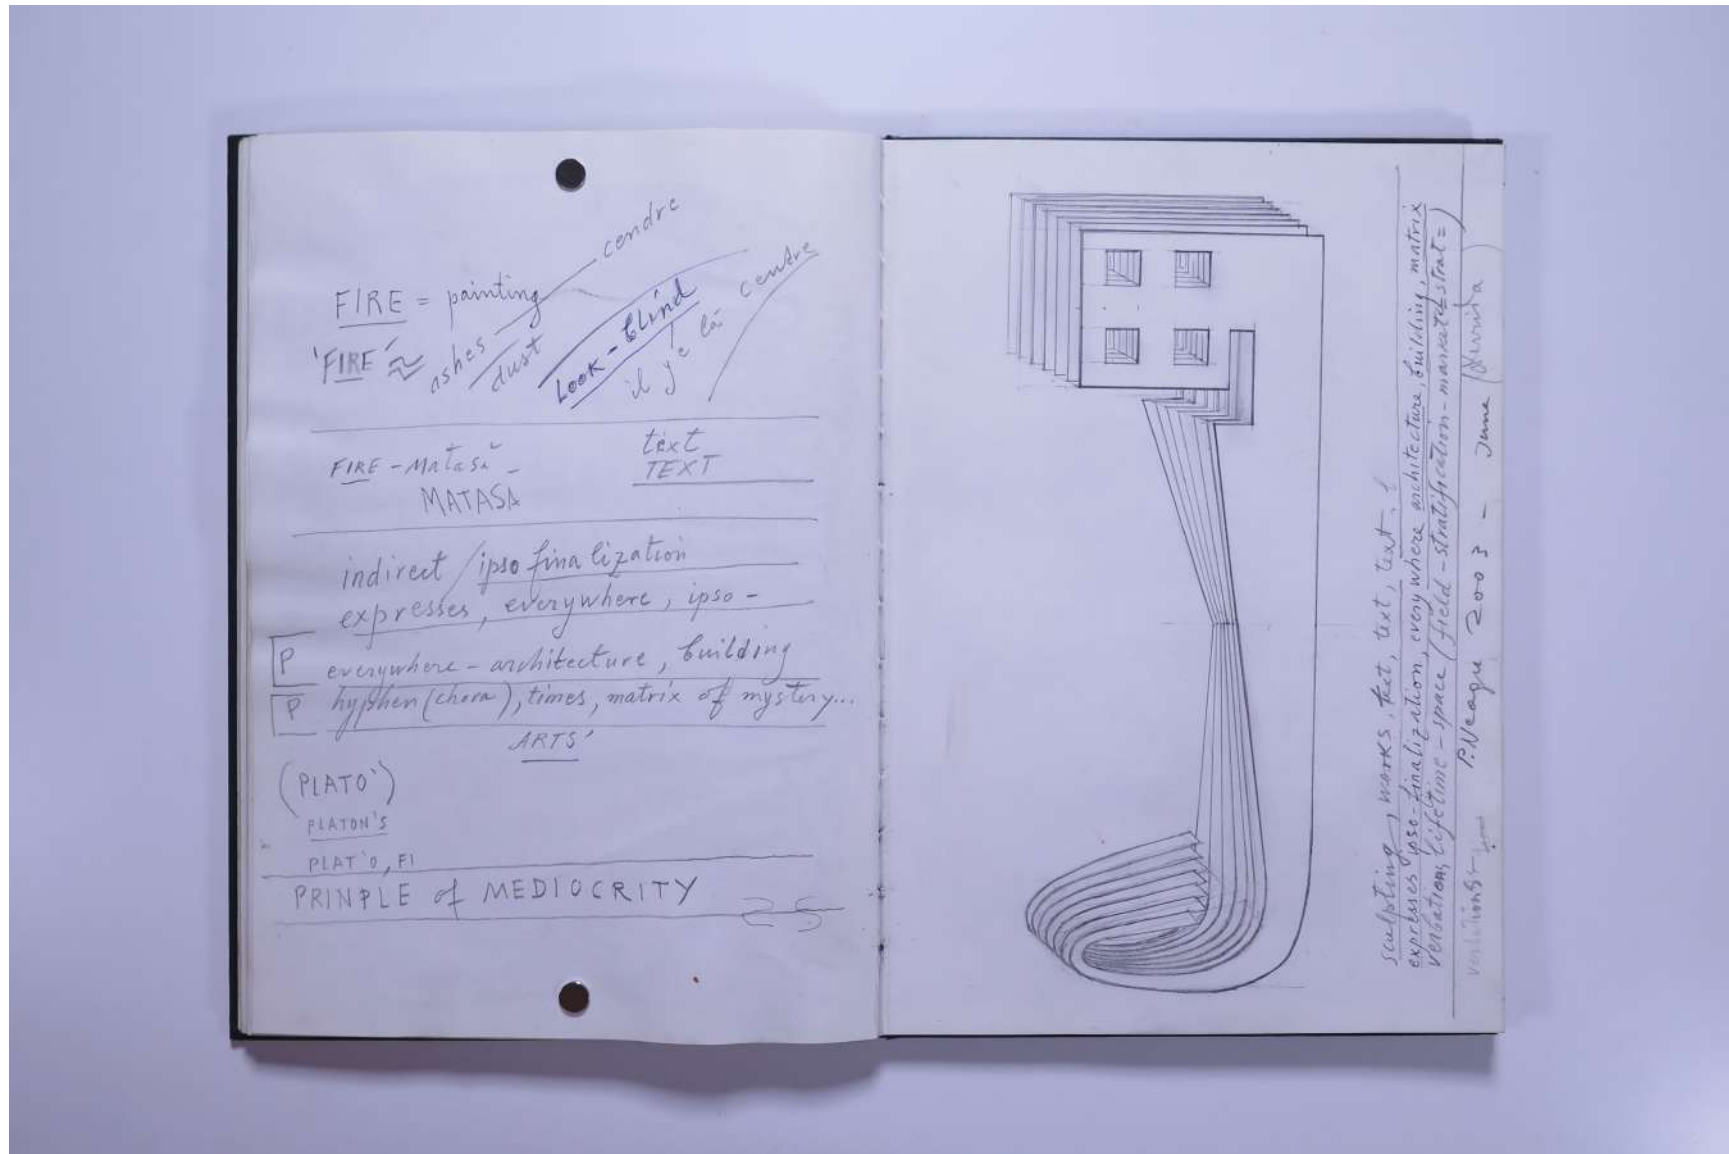 FIRE = painting
cendre
'FIRE' ≈ ashes
dust
Look-blind
il y'e là
centre
FIRE - Matasă -
text
TEXT
MATASA
indirect / ipso finalization
expresses, everywhere, ipso -
P everywhere - architecture, building
P hyphen (chora), times, matrix of mystery...
ARTS'
(PLATO')
PLATON'S
PLAT'O, FI
PRINPLE of MEDIOCRITY
25
sculpting, works, text, text, text.
expresses ipso-finalization, everywhere architecture, building, matrix
verbations, lifetime-space (field-stratification-
P. Neagu 2003 - June (Derrida)